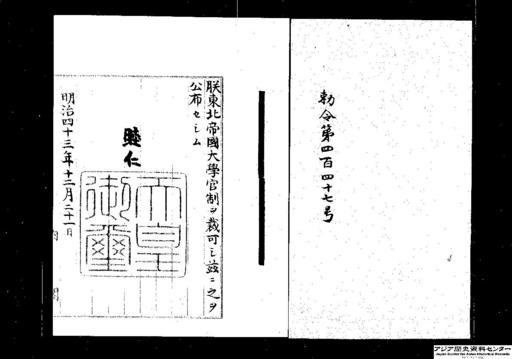 勅令第四百四十七号
朕東北帝國大學官制ヲ裁可シ茲ニ之ヲ
公布セシム
睦仁
天皇御璽
明治四十三年十二月二十一日
内閣
アジア歴史資料センター
Japan Center for Asian Historical Records